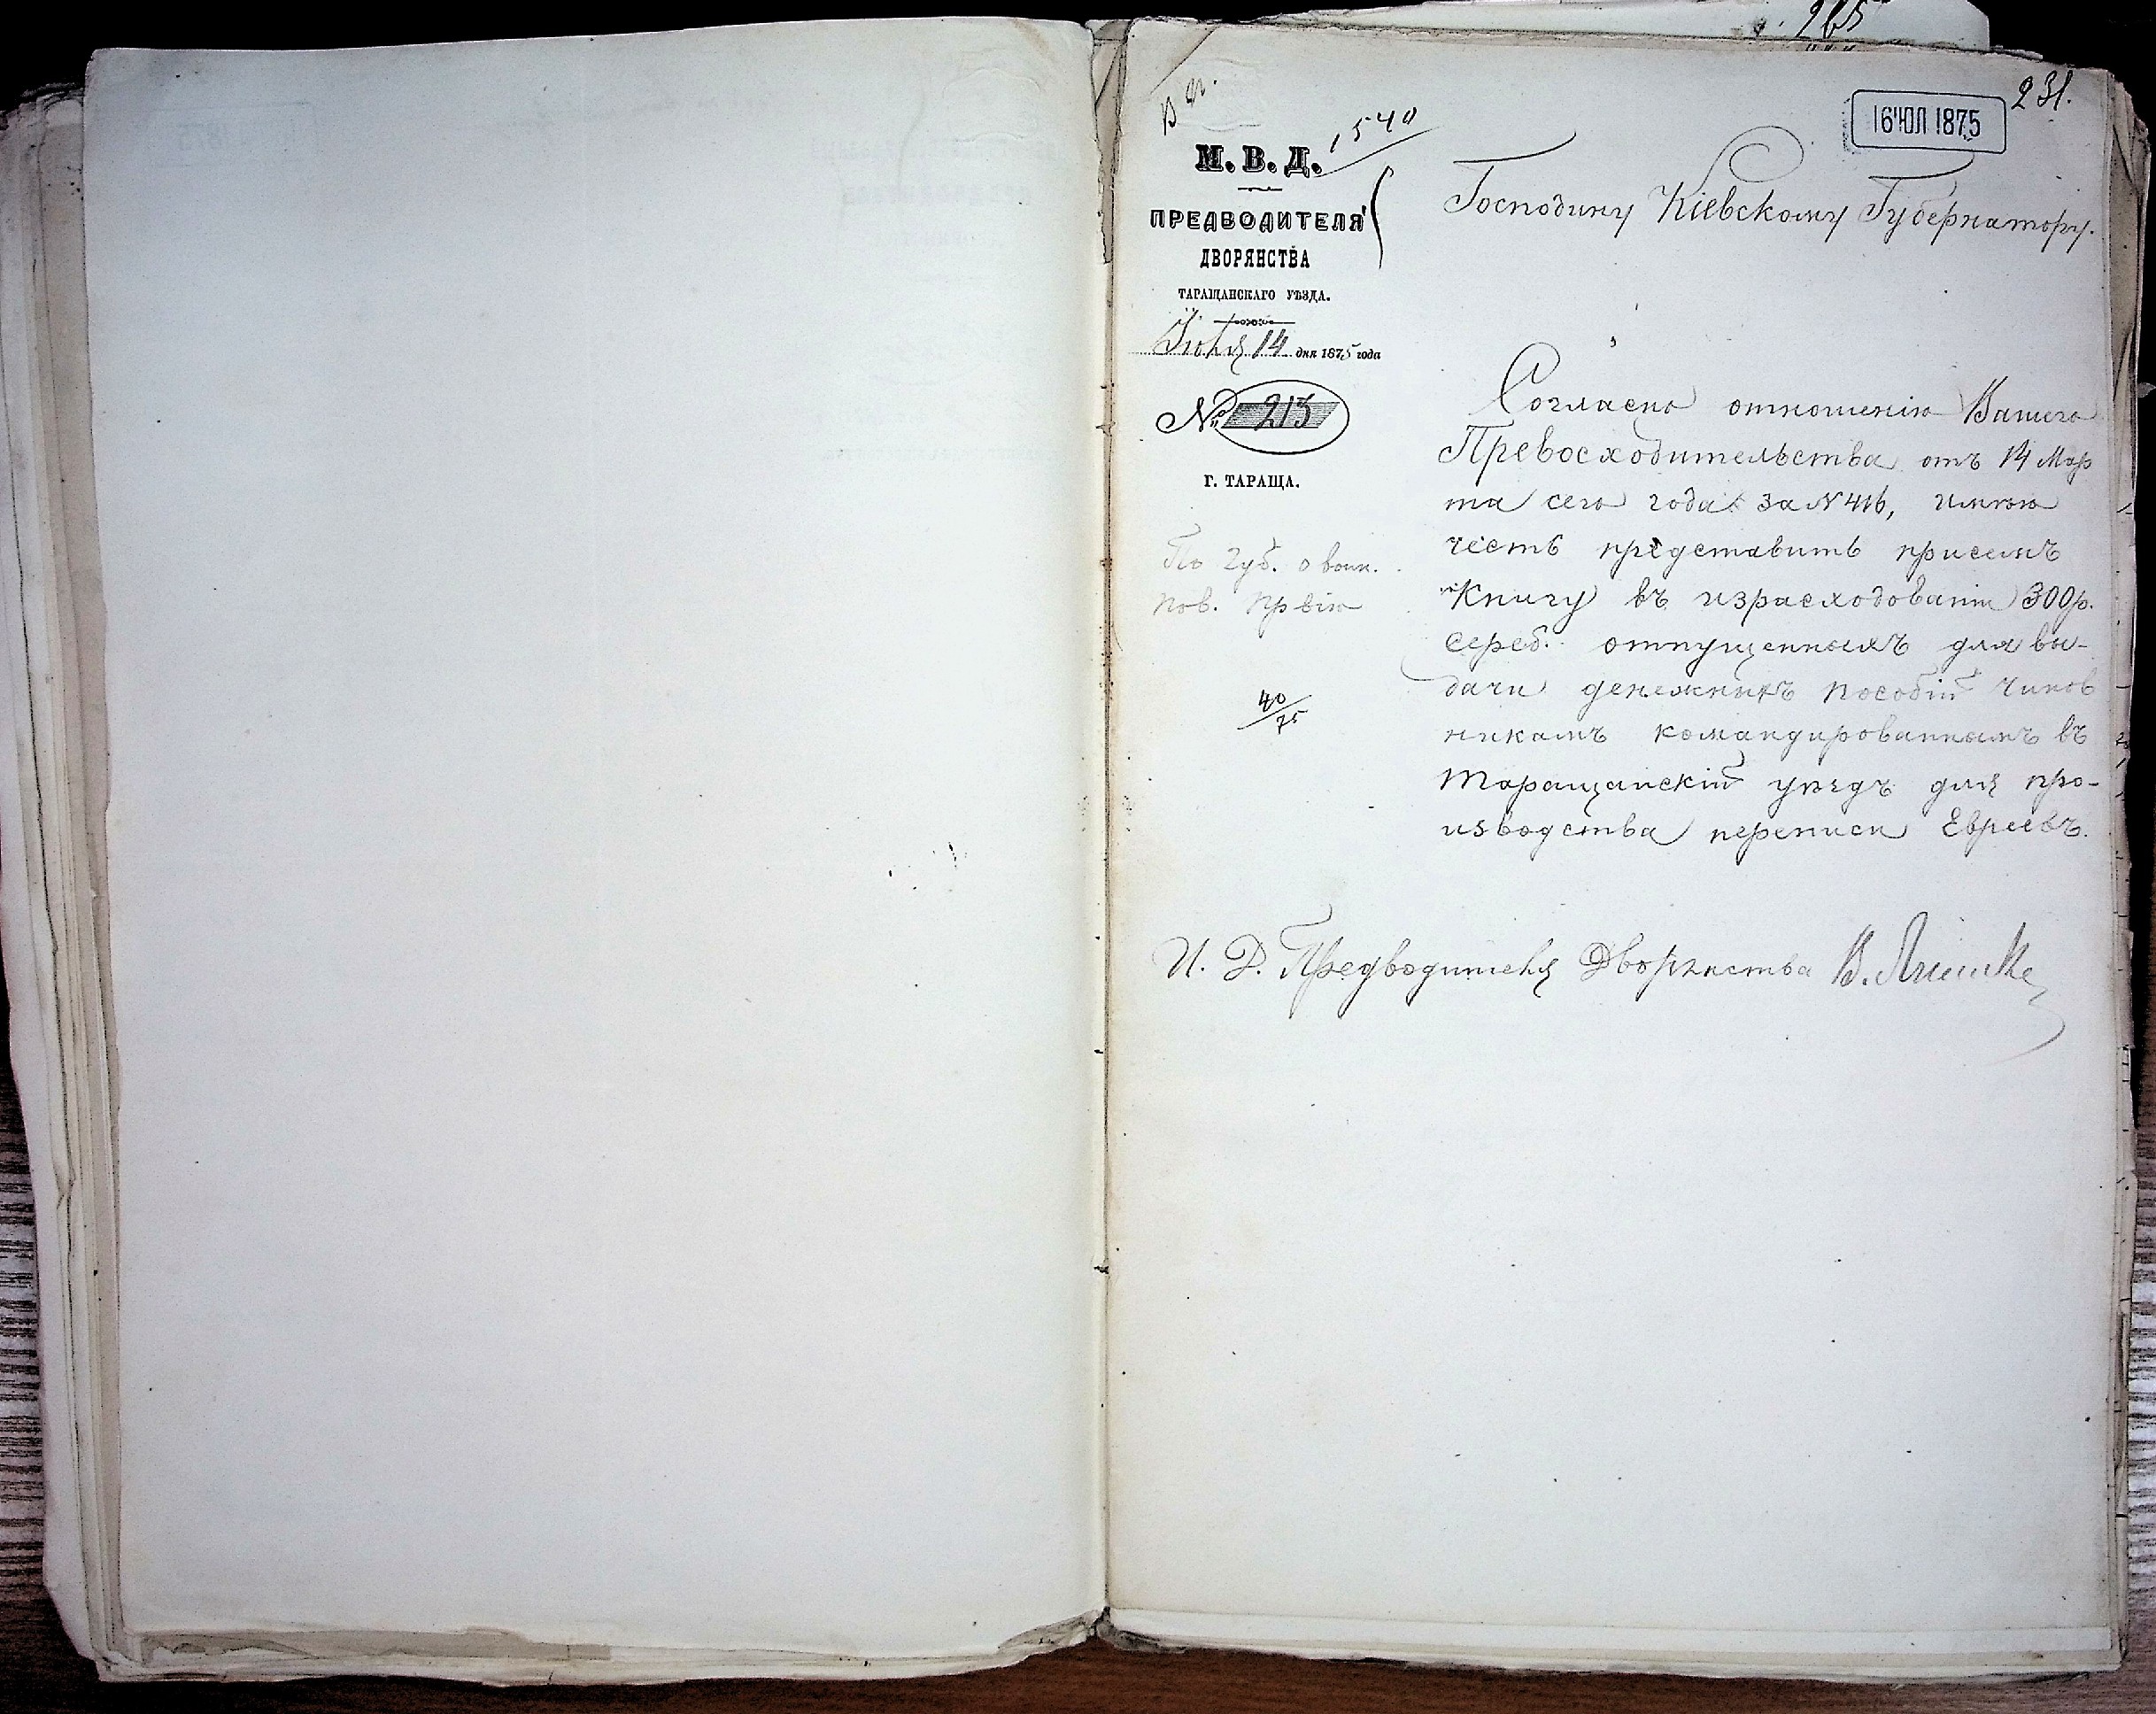 265
231.
16 ЮЛ 1875
В
1540
М. В. Д.
ПРЕДВОДИТЕЛЯ
ДВОРЯНСТВА
ТАРАЩАНСКАГО УѢЗДА.
Іюля 14 дня 1875 года
№ 213
Г. ТАРАЩА.
По Губ. о воин.
пов. пр־вію
40/75
Господину Кіевскому Губернатору.
Согласно отношенію Вашего
Превосходительства отъ 14 Мар
та сего года за № 416, имѣю
честь представить присемъ
Книгу въ израсходованіи 300 р.
сереб. отпущенныхъ для вы-
дачи денежныхъ пособій чинов
никамъ командированнымъ въ
Таращанскій уѣздъ для про-
изводства переписи Евреевъ.
И. Д. Предводителя Дворянства В.